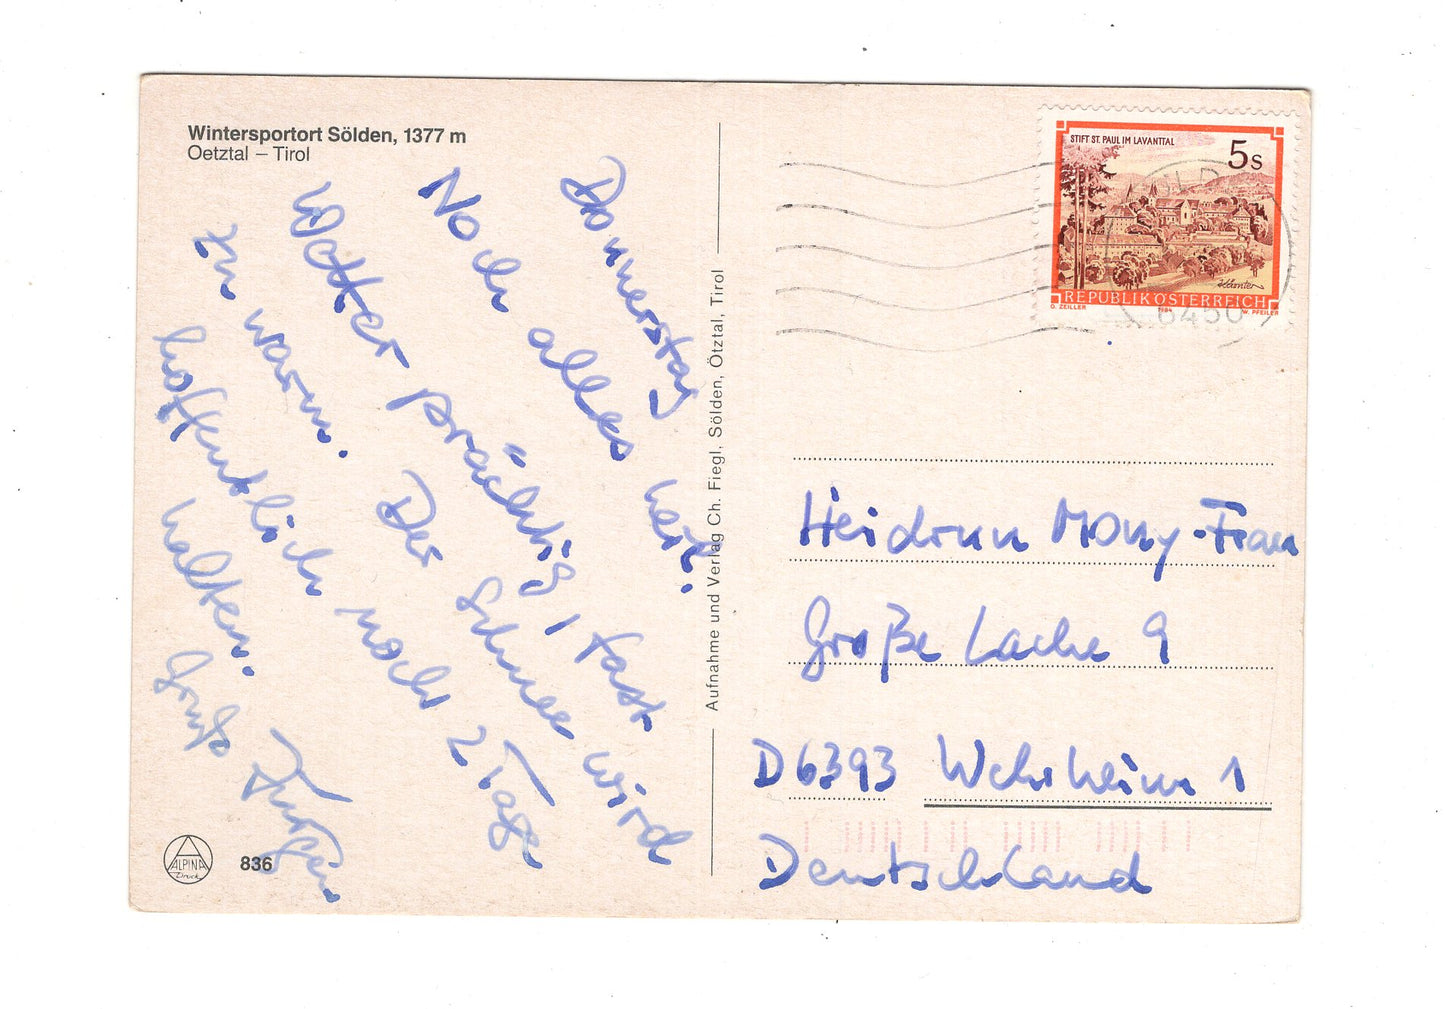 Wintersportort Sölden, 1377 m
Oetztal – Tirol
Donnerstag
Noch alles heil.
Wetter prächtig, fast
zu warm. Der Schnee wird
hoffentlich noch 2 Tage
halten.
Gruß
Jürgen
ALPINA
Druck
836
Aufnahme und Verlag Ch. Fiegl, Sölden, Ötztal, Tirol
STIFT ST. PAUL IM LAVANTTAL
5s
REPUBLIK ÖSTERREICH
O. ZEILLER
1984
W. PFEILER
6450
Heidrun Mony-Frau
Große Lache 9
D 6393 Wehrheim 1
Deutschland